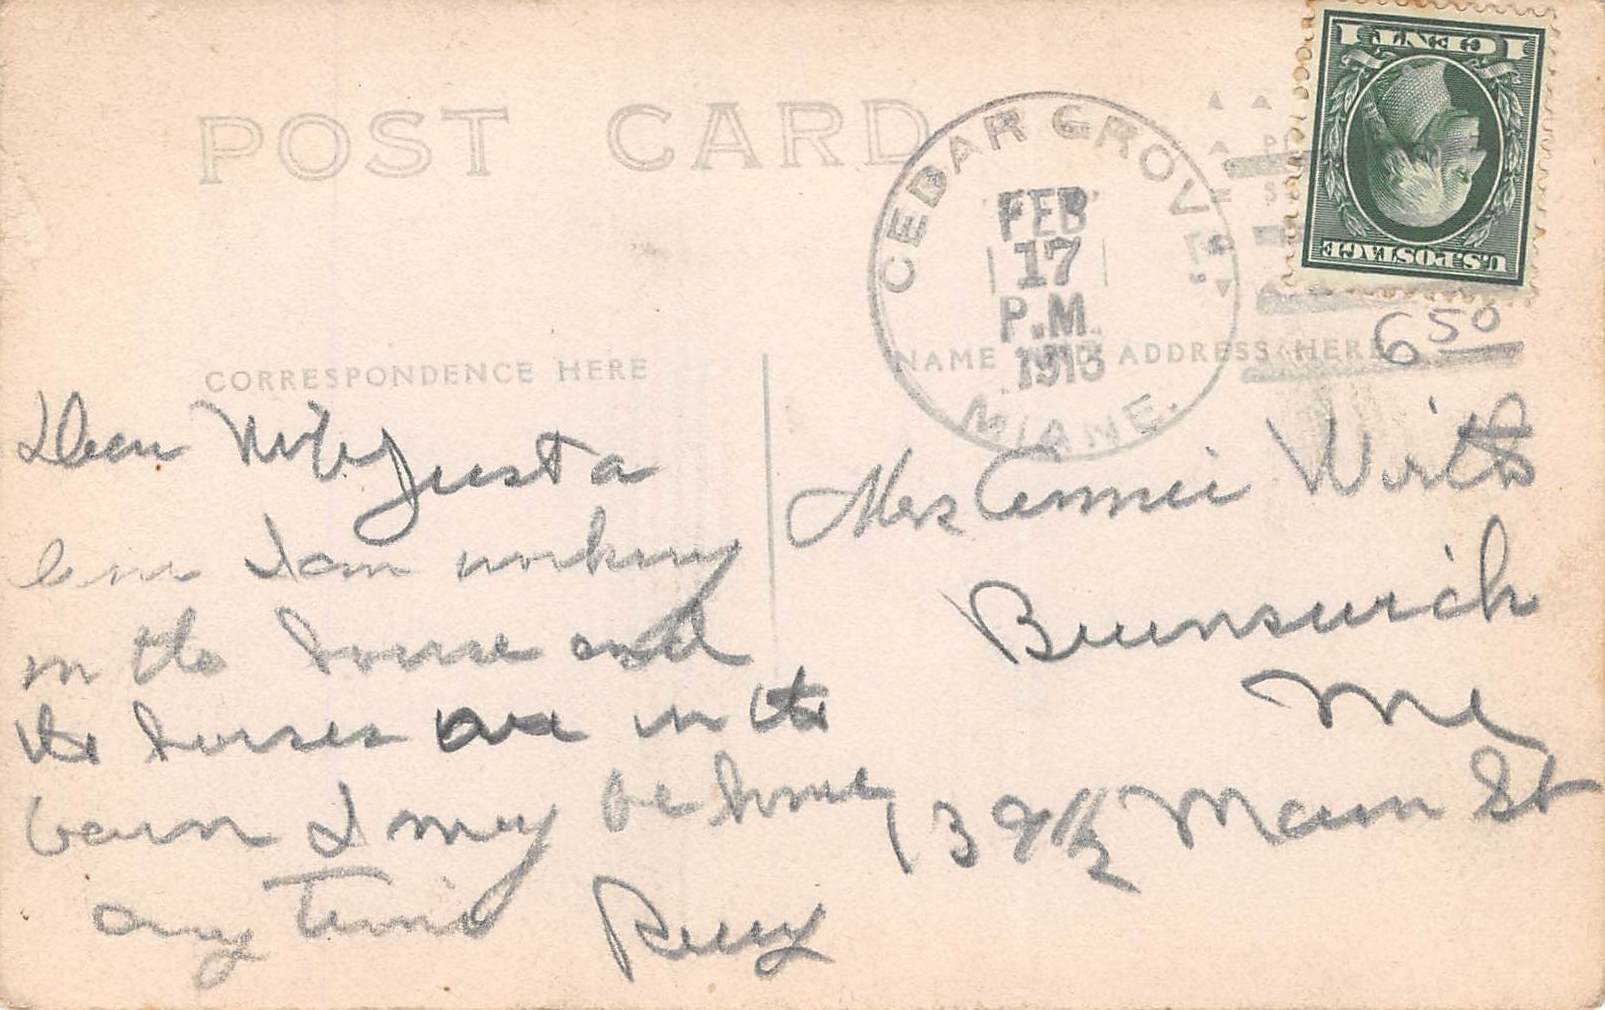 POST CARD
CEDAR GROVE,
FEB
17
P.M.
1913
MIANE.
1 CENT 1
U.S. POSTAGE
6 50
CORRESPONDENCE HERE
NAME AND ADDRESS HERE
Dear Wife Just a
line I am working
in the house and
the horses are in the
barn I may be home
any time Perry
Mrs Annie Wirth
Brunswick
Me
139 1/2 Main St